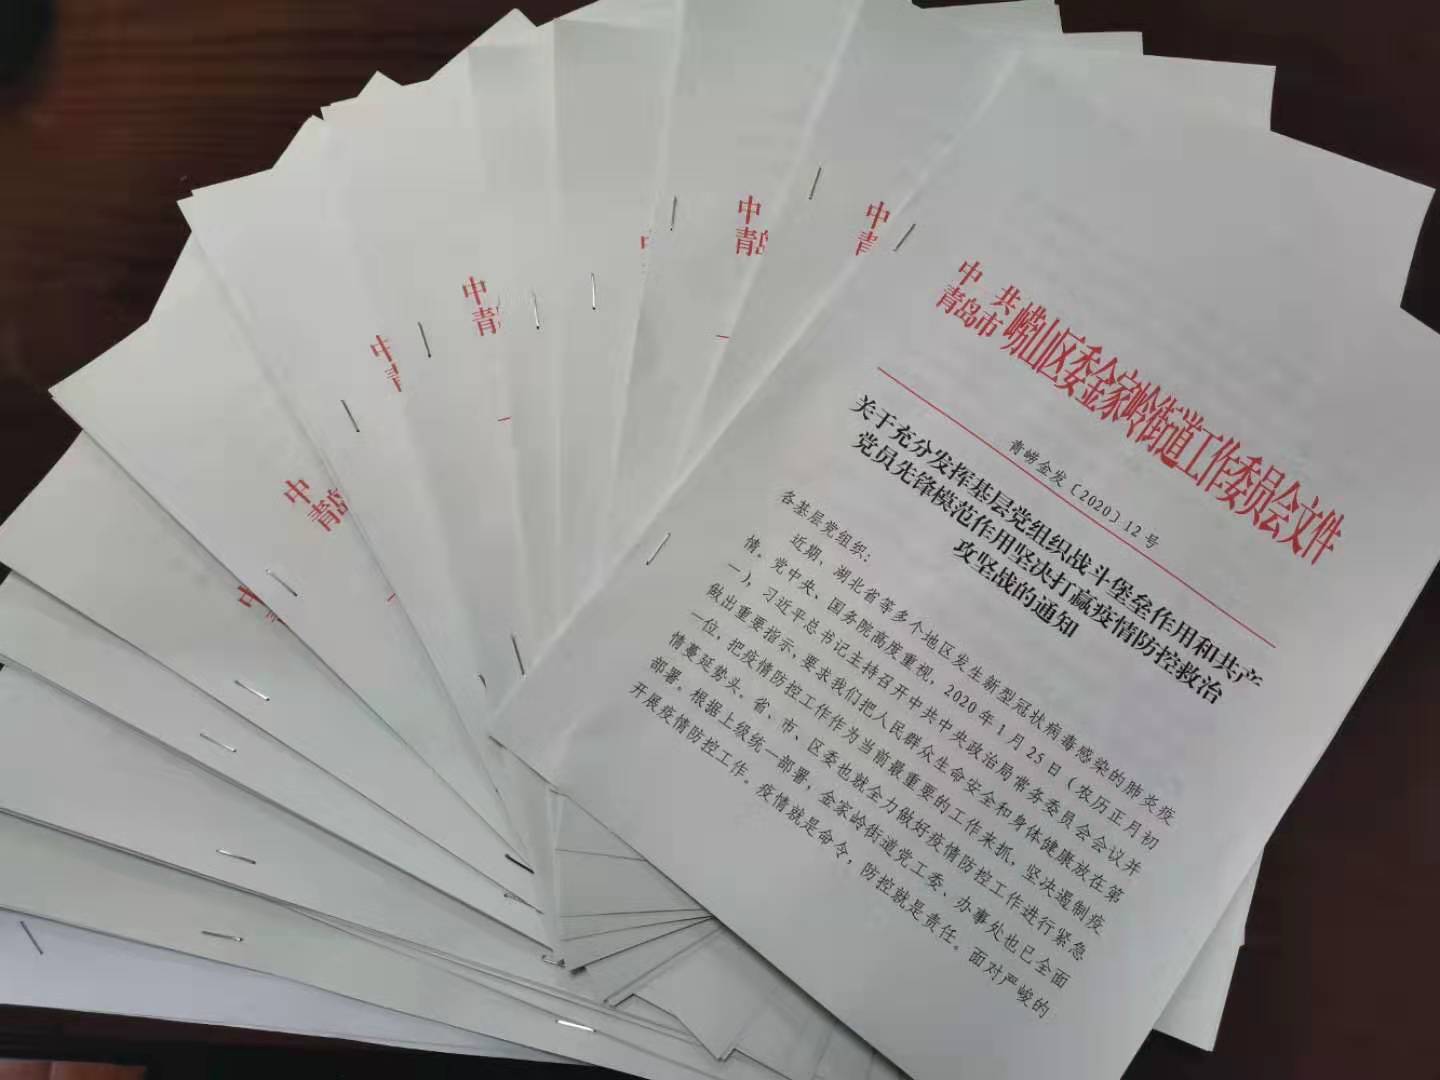 中共
青岛市
崂山区委金家岭街道工作委员会文件
青崂金发〔2020〕12号
关于充分发挥基层党组织战斗堡垒作用和共产
党员先锋模范作用坚决打赢疫情防控救治
攻坚战的通知
各基层党组织：
近期，湖北省等多个地区发生新型冠状病毒感染的肺炎疫
情。党中央、国务院高度重视，2020年1月25日（农历正月初
一），习近平总书记主持召开中共中央政治局常务委员会会议并
做出重要指示，要求我们把人民群众生命安全和身体健康放在第
一位，把疫情防控工作作为当前最重要的工作来抓，坚决遏制疫
情蔓延势头。省、市、区委也就全力做好疫情防控工作进行紧急
部署。根据上级统一部署，金家岭街道党工委、办事处也已全面
开展疫情防控工作。疫情就是命令，防控就是责任。面对严峻的
中
青岛
中
青
中
青
中
青
中
青
中